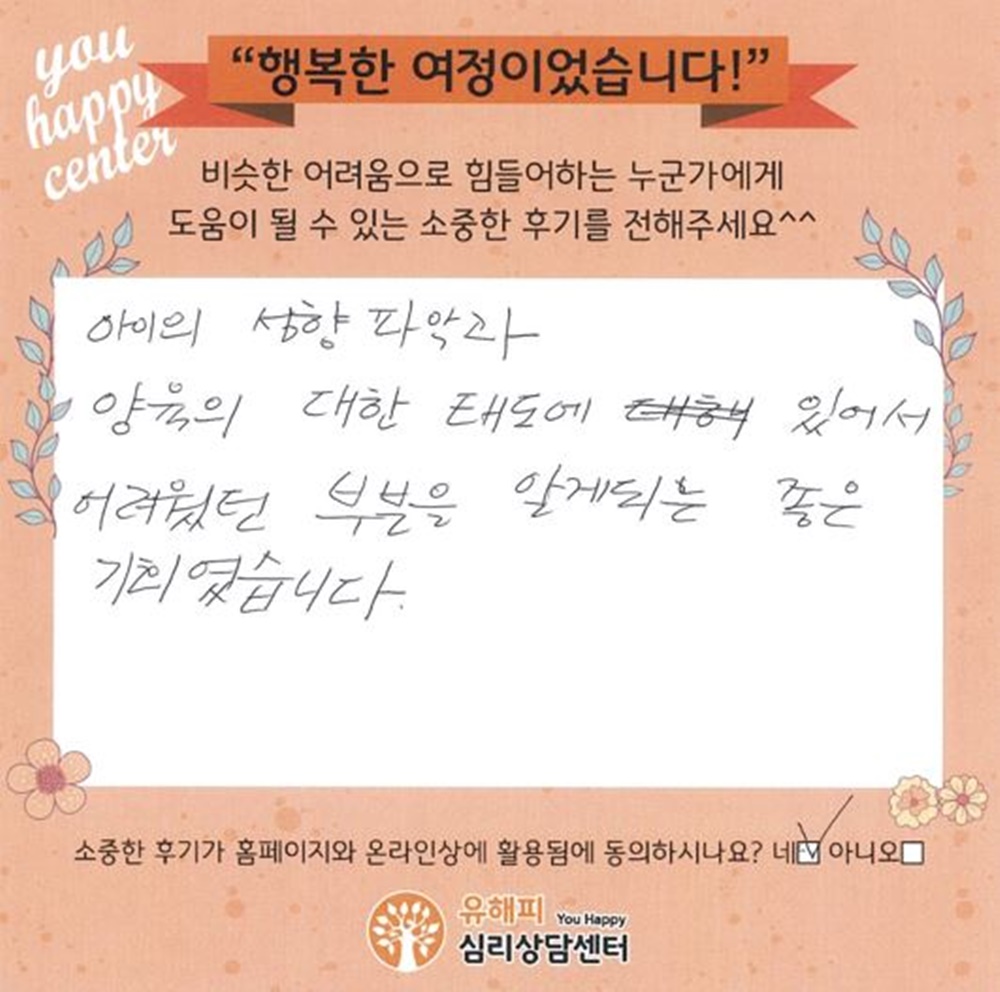 you
happy
center
“행복한 여정이었습니다!”
비슷한 어려움으로 힘들어하는 누군가에게
도움이 될 수 있는 소중한 후기를 전해주세요^^
아이의 성향파악과
양육의 대한 태도에 대해 있어서
어려웠던 부분을 알게되는 좋은
기회였습니다.
소중한 후기가 홈페이지와 온라인상에 활용됨에 동의하시나요? 네☑ 아니오□
유해피 You Happy
심리상담센터